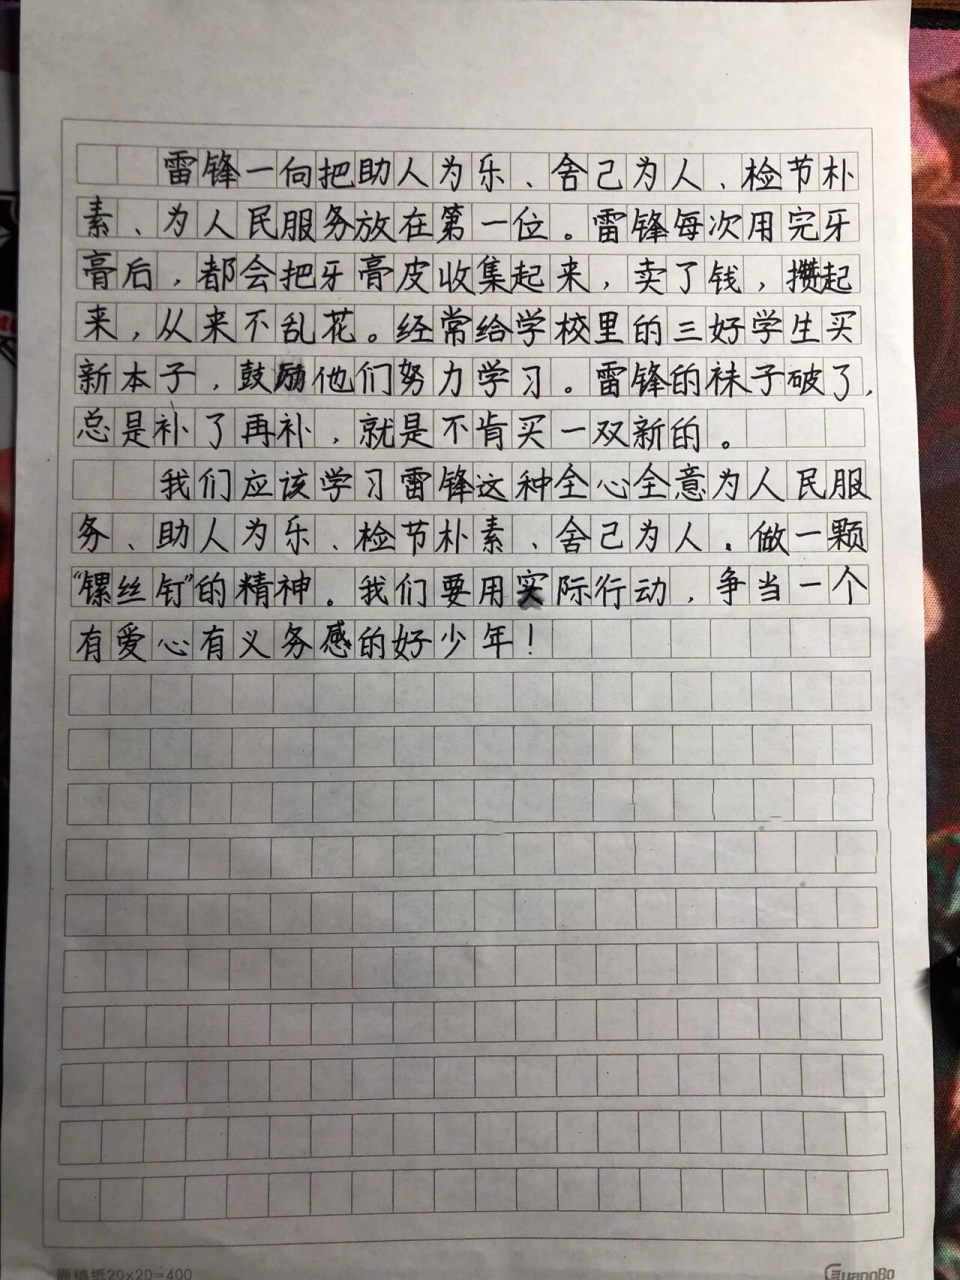 雷锋一向把助人为乐、舍己为人、检节朴
素、为人民服务放在第一位。雷锋每次用完牙
膏后，都会把牙膏皮收集起来，卖了钱，攒起
来，从来不乱花。经常给学校里的三好学生买
新本子，鼓励他们努力学习。雷锋的袜子破了，
总是补了再补，就是不肯买一双新的。
我们应该学习雷锋这种全心全意为人民服
务、助人为乐、检节朴素、舍己为人。做一颗
“镙丝钉”的精神。我们要用实际行动，争当一个
有爱心有义务感的好少年！
原稿纸20×20=400
GuangBo